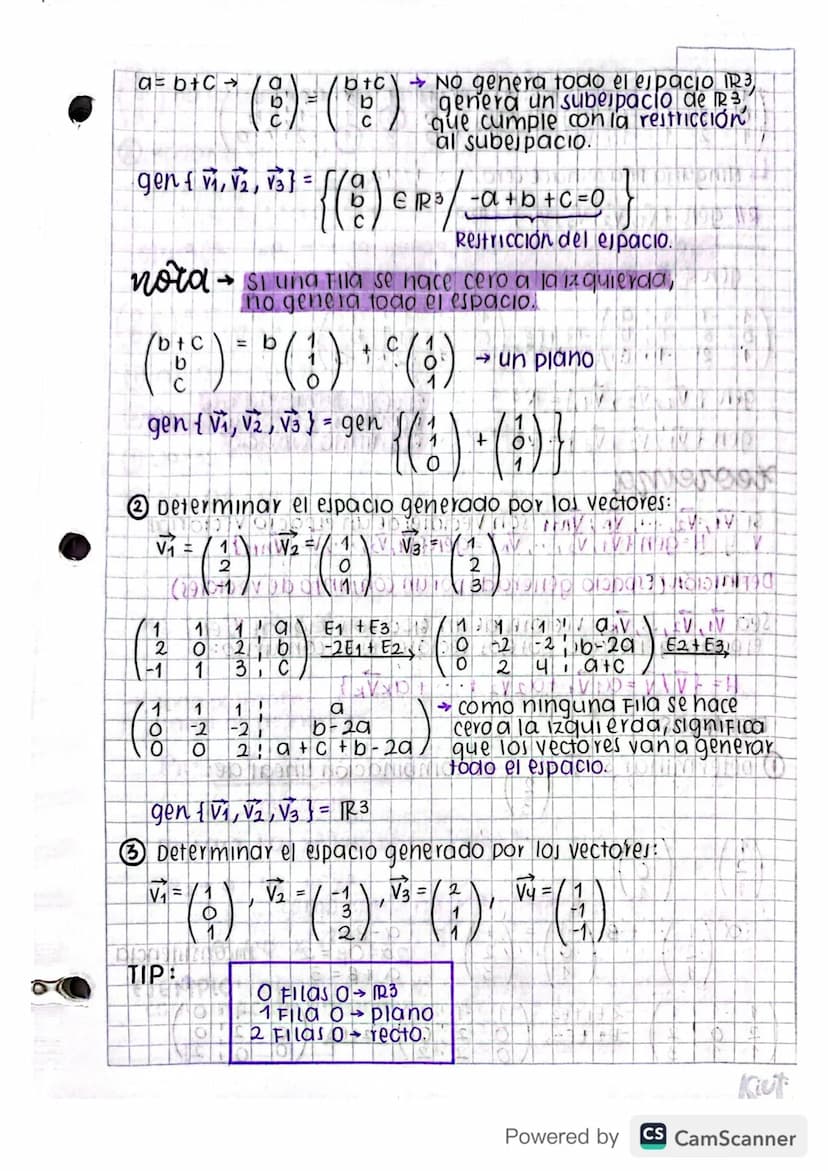 a = b+c → (a b c) = (b+c b c) → No genera todo el espacio IR3,
genera un subespacio de IR3,
que cumple con la restricción
al subespacio.
gen { v1, v2, v3 } = { (a b c) ∈ IR3 / -a + b + c = 0 }
Restricción del espacio.
nota → Si una Fila se hace cero a la izquierda,
no genera todo el espacio.
(b+c b c) = b (1 1 0) + c (1 0 1) → un plano
gen { v1, v2, v3 } = gen { (1 1 0) + (1 0 1) }
② Determinar el espacio generado por los vectores:
v1 = (1 2 -1) v2 = (1 0 1) v3 = (1 2 3)
(1 1 1 ¦ a) E1 + E3 (1 1 1 ¦ a)
(2 0 2 ¦ b) -2E1 + E2 → (0 -2 -2 ¦ b-2a) E2+E3
(-1 1 3 ¦ c) (0 2 4 ¦ a+c)
(1 1 1 ¦ a) → como ninguna Fila se hace
(0 -2 -2 ¦ b-2a) cero a la izquierda, significa
(0 0 2 ¦ a + c + b - 2a) que los vectores van a generar
todo el espacio.
gen { v1, v2, v3 } = IR3
③ Determinar el espacio generado por los vectores:
v1 = (1 0 1), v2 = (-1 3 2), v3 = (2 1 1), v4 = (1 -1 -1)
TIP:
0 Filas 0 → IR3
1 Fila 0 → plano
2 Filas 0 → recto.
Kiut
Powered by CS CamScanner